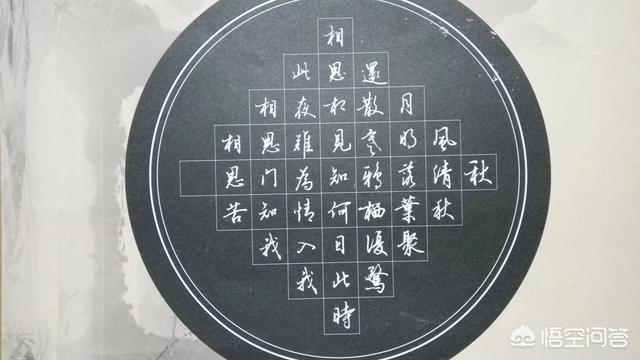 秋
風清秋
月明落葉聚
還散寒鴉栖復驚
相思相見知何日此時
此夜難為情入我
相思門知我
相思苦
悟空问答